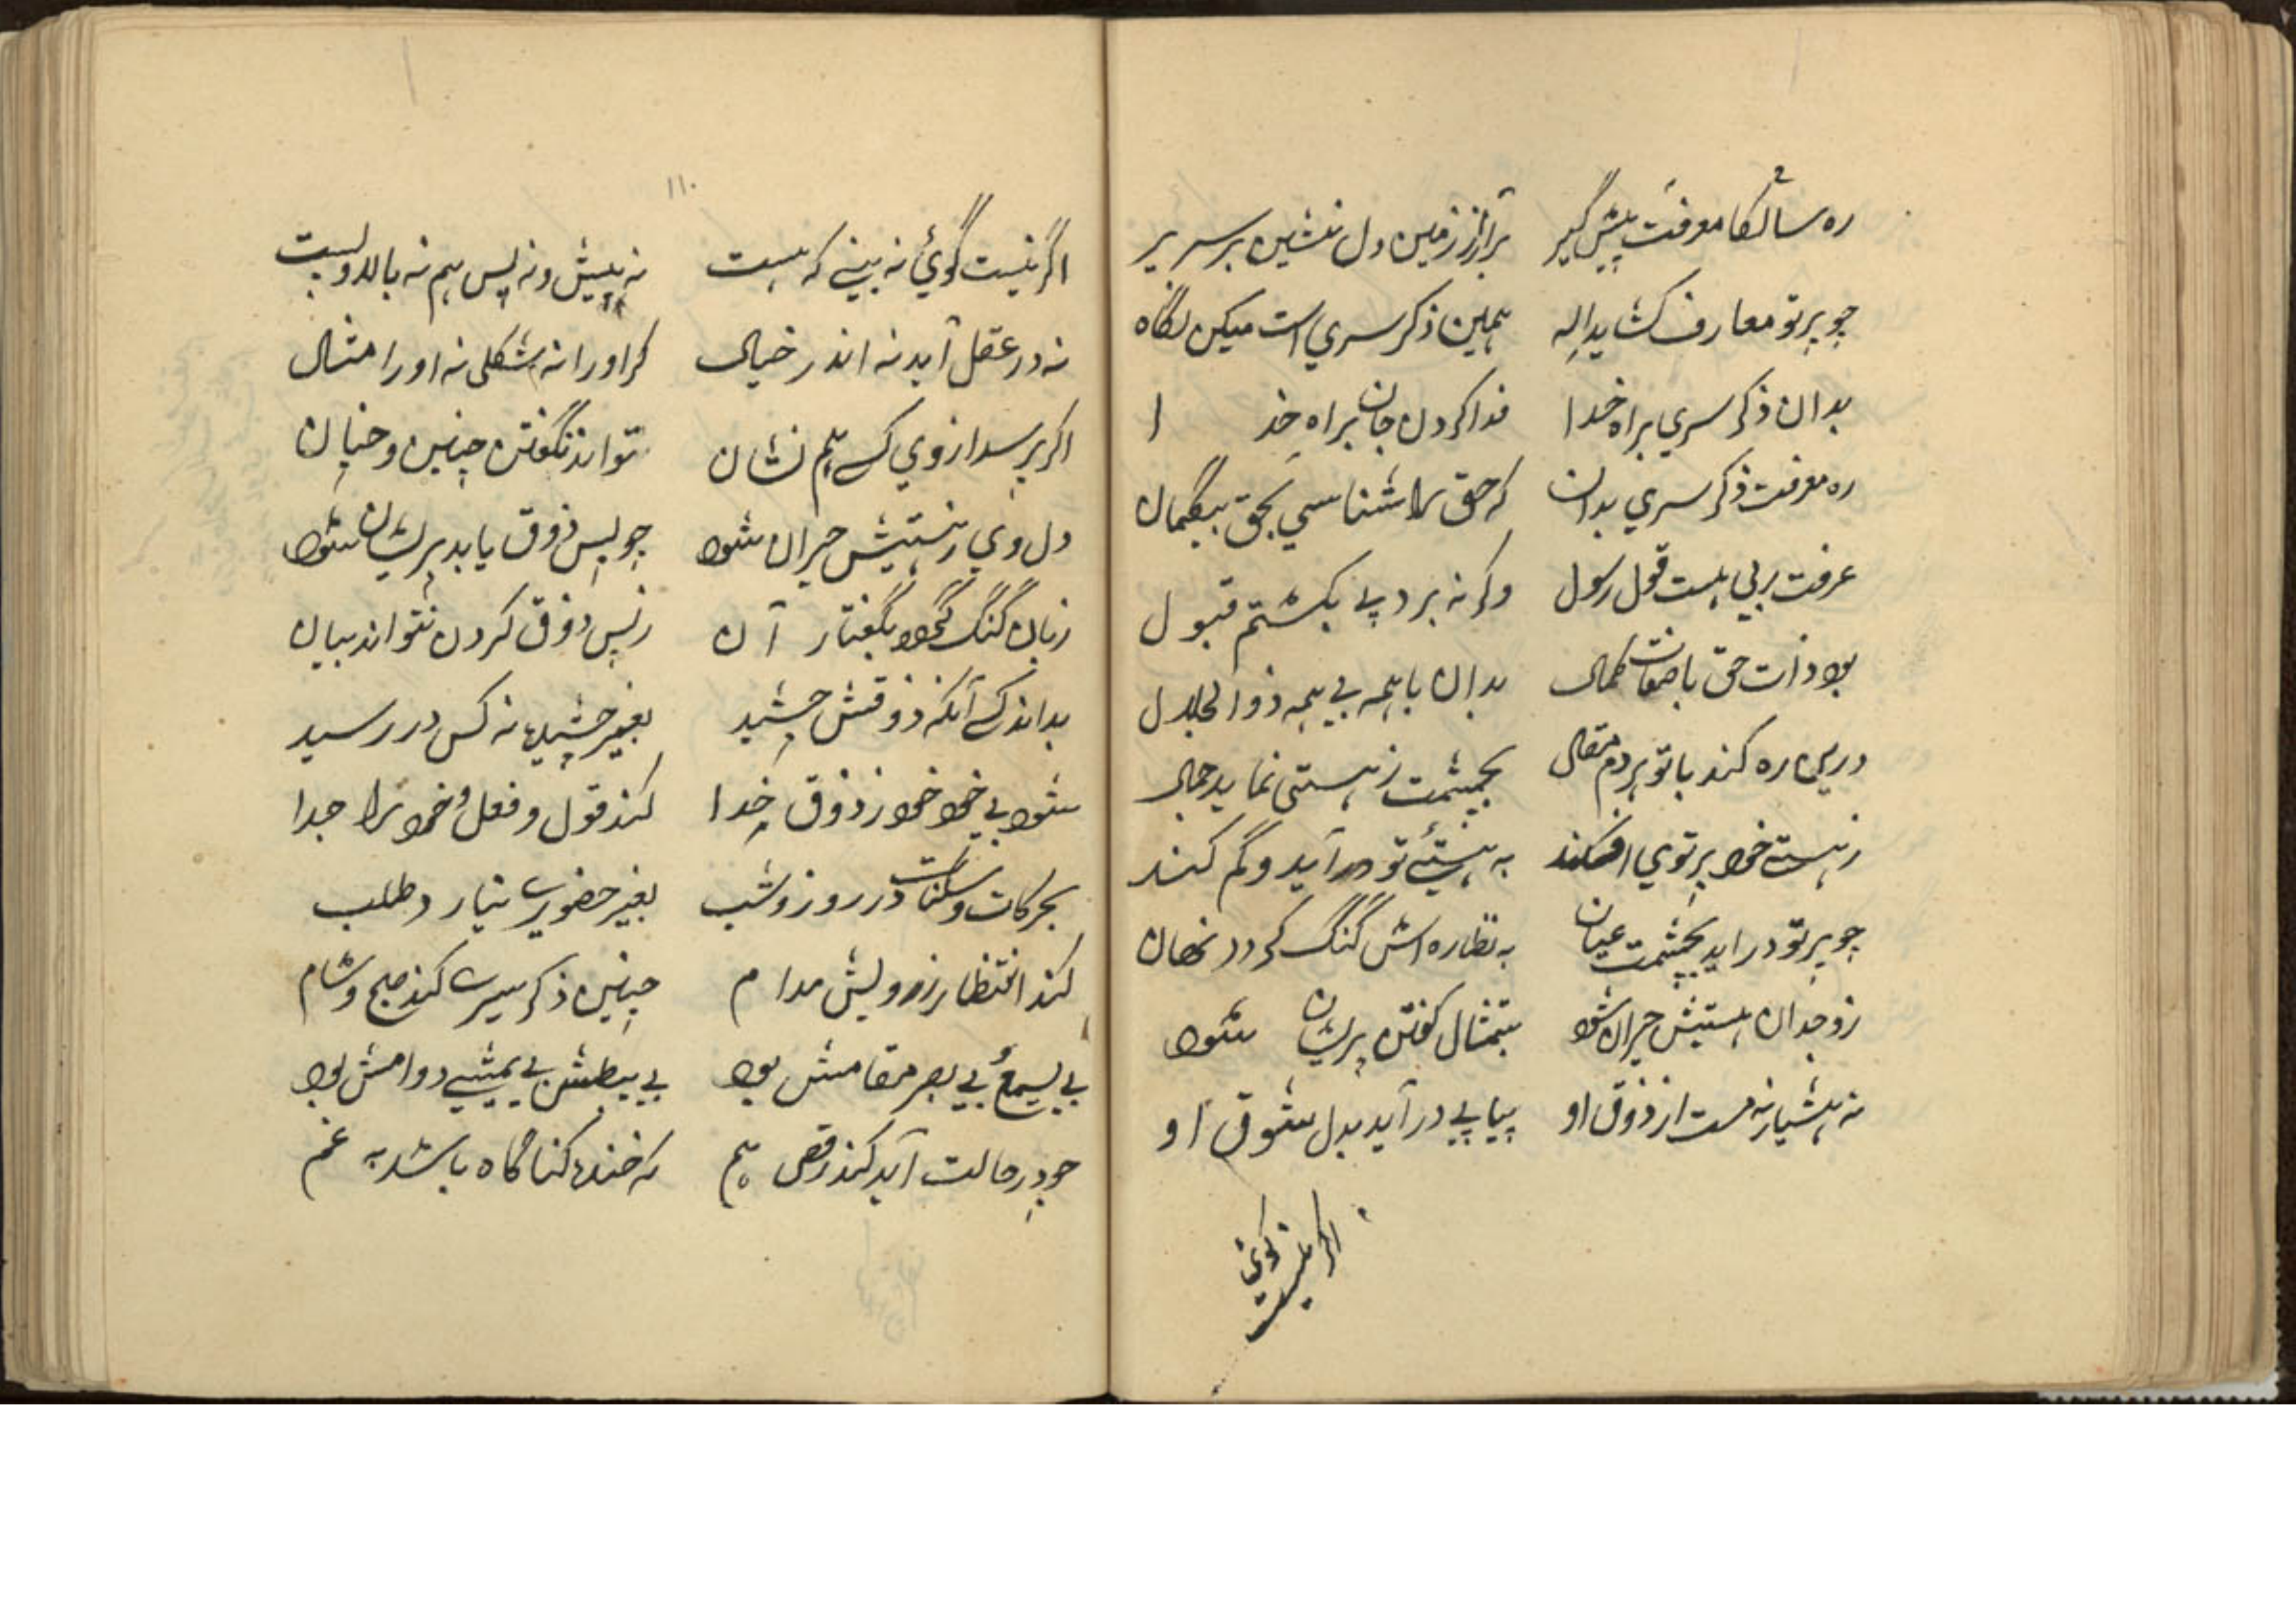 ره سالکا معرفت پیش گیر برآر از زمین دل نشین بر سریر
چو بر تو معارف کشاید اله همین ذکر سری است میکن نگاه
بدان ذکر سری براه خدا فدا کردن جان براه خدا
ره معرفت ذکر سری بدان که حق را شناسی بحق بیگمان
عرفت ربی هست قول رسول وگرنه برد پے بکشتم قبول
بود ذات حق با صفات کمال بدان با همه بی همه ذو الجلال
درین ره کند با تو هر دم مقال بچشمت ز هستی نماید جمال
ز هستے خود پرتوی افکند به هستئے تو در آید و گم کند
چو بر تو در اید بچشمت عیان به نظاره اش گنگ گردد نهان
ز وجدان هستیش حیران شود بتمثال کفتن پریشان شود
نه هشیار نه مست از ذوق او پیاپے در آید بدل شوق او
اگر نیست گوئی
۱۱۰
اگر نیست گوئی نه بینے که هست نه پیش و نه پس هم نه بالا و پست
نه در عقل آید نه اندر خیال که او را نه شکلی نه او را مثال
اکر پرسد از وی کسے هم نشان تواند نگفتن چنین و چنان
دل وی ز هستیش حیران شود چو بس ذوق یابد پریشان شود
زبان گنگ گردد بگفتار آن ز بس ذوق کردن نتواند بیان
بداند کسے آنکه ذوقش چشید بغیر چشیدن نه کس در رسید
شود بی خود خود ز ذوق خدا کند قول و فعل و خود را جدا
بحرکات و سکنات در روز و شب بغیر حضوری نیارد طلب
کند انتظار ز رویش مدام چنین ذکر سری کند صبح و شام
بی یسمع بی یبصر مقامش بود بے یبطش بے یمشے دوامش بود
چو در حالت آید کند رقص هم که خنده کنا گاه باشد به غم